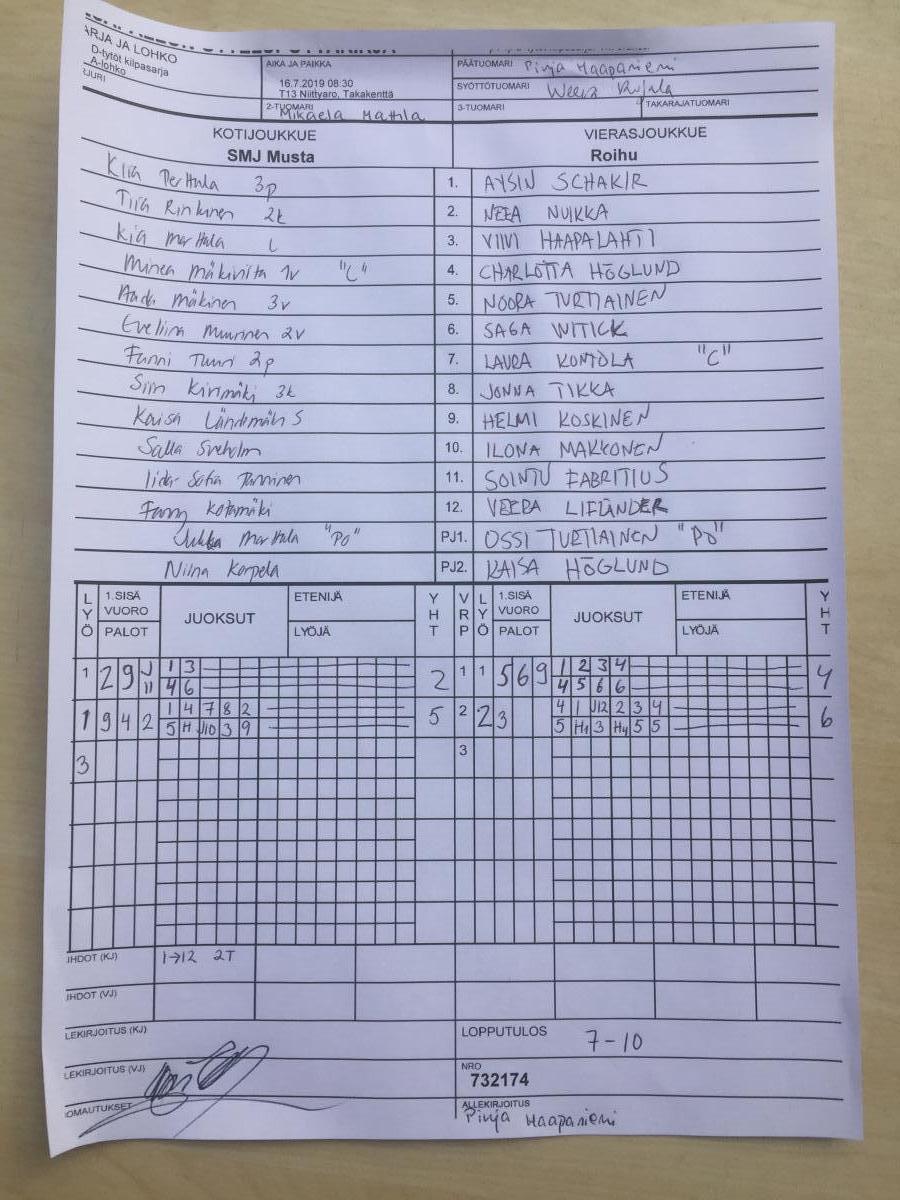 ARJA JA LOHKO
D-tytöt kilpasarja
A-lohko
AIKA JA PAIKKA
16.7.2019 08:30
T13 Niittyaro, Takakenttä
PÄÄTUOMARI Pinja Haapaniemi
SYÖTTÖTUOMARI Weera
2-TUOMARI Mikaela Mattila
3-TUOMARI
TAKARAJATUOMARI
KOTIJOUKKUE VIERASJOUKKUE
SMJ Musta Roihu
Kiia Perttula 3p 1. AYSIN SCHAKIR
Tiia Rinkinen 2k 2. NEEA NUIKKA
Kia Marttala L 3. VIIVI HAAPALAHTI
Minea Mäkiviita 1v "C" 4. CHARLOTTA HÖGLUND
Aada Mäkinen 3v 5. NOORA TURTIAINEN
Eveliina Muurinen 2v 6. SAGA WITICK
Fanni Tuuri 2p 7. LAURA KONTOLA "C"
Siiri Kirimäki 3k 8. JONNA TIKKA
Kaisa S 9. HELMI KOSKINEN
Salla Sveholm 10. ILONA MAKKONEN
Iida-Sofia Tanninen 11. SOINTU FABRITIUS
Fanny Kotamäki 12. VEERA LIFLÄNDER
Jukka Marttala "PJ" PJ1. OSSI TURTIAINEN "PJ"
Niina Korpela PJ2. KAISA HÖGLUND
LYÖ 1.SISÄ VUORO PALOT JUOKSUT ETENIJÄ LYÖJÄ YHT VRP LYÖ 1.SISÄ VUORO PALOT JUOKSUT ETENIJÄ LYÖJÄ YHT
1 2 9 J11 1 3 2 1 1 5 6 9 1 2 3 4 4
4 6 4 5 6 6
1 9 4 2 1 4 7 8 2 5 2 2 3 4 1 J12 2 3 4 6
5 H J10 3 9 5 H1 3 H4 5 5
3 3
IHDOT (KJ) 1→12 2T
IHDOT (VJ)
LEKIRJOITUS (KJ)
LOPPUTULOS 7-10
LEKIRJOITUS (VJ)
NRO
732174
OMAUTUKSET
ALLEKIRJOITUS
Pinja Haapaniemi